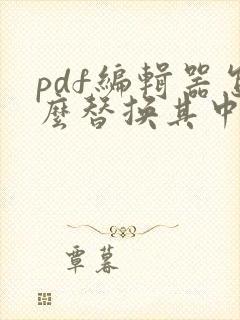 pdf編輯器怎
麼替換其中
覃暮